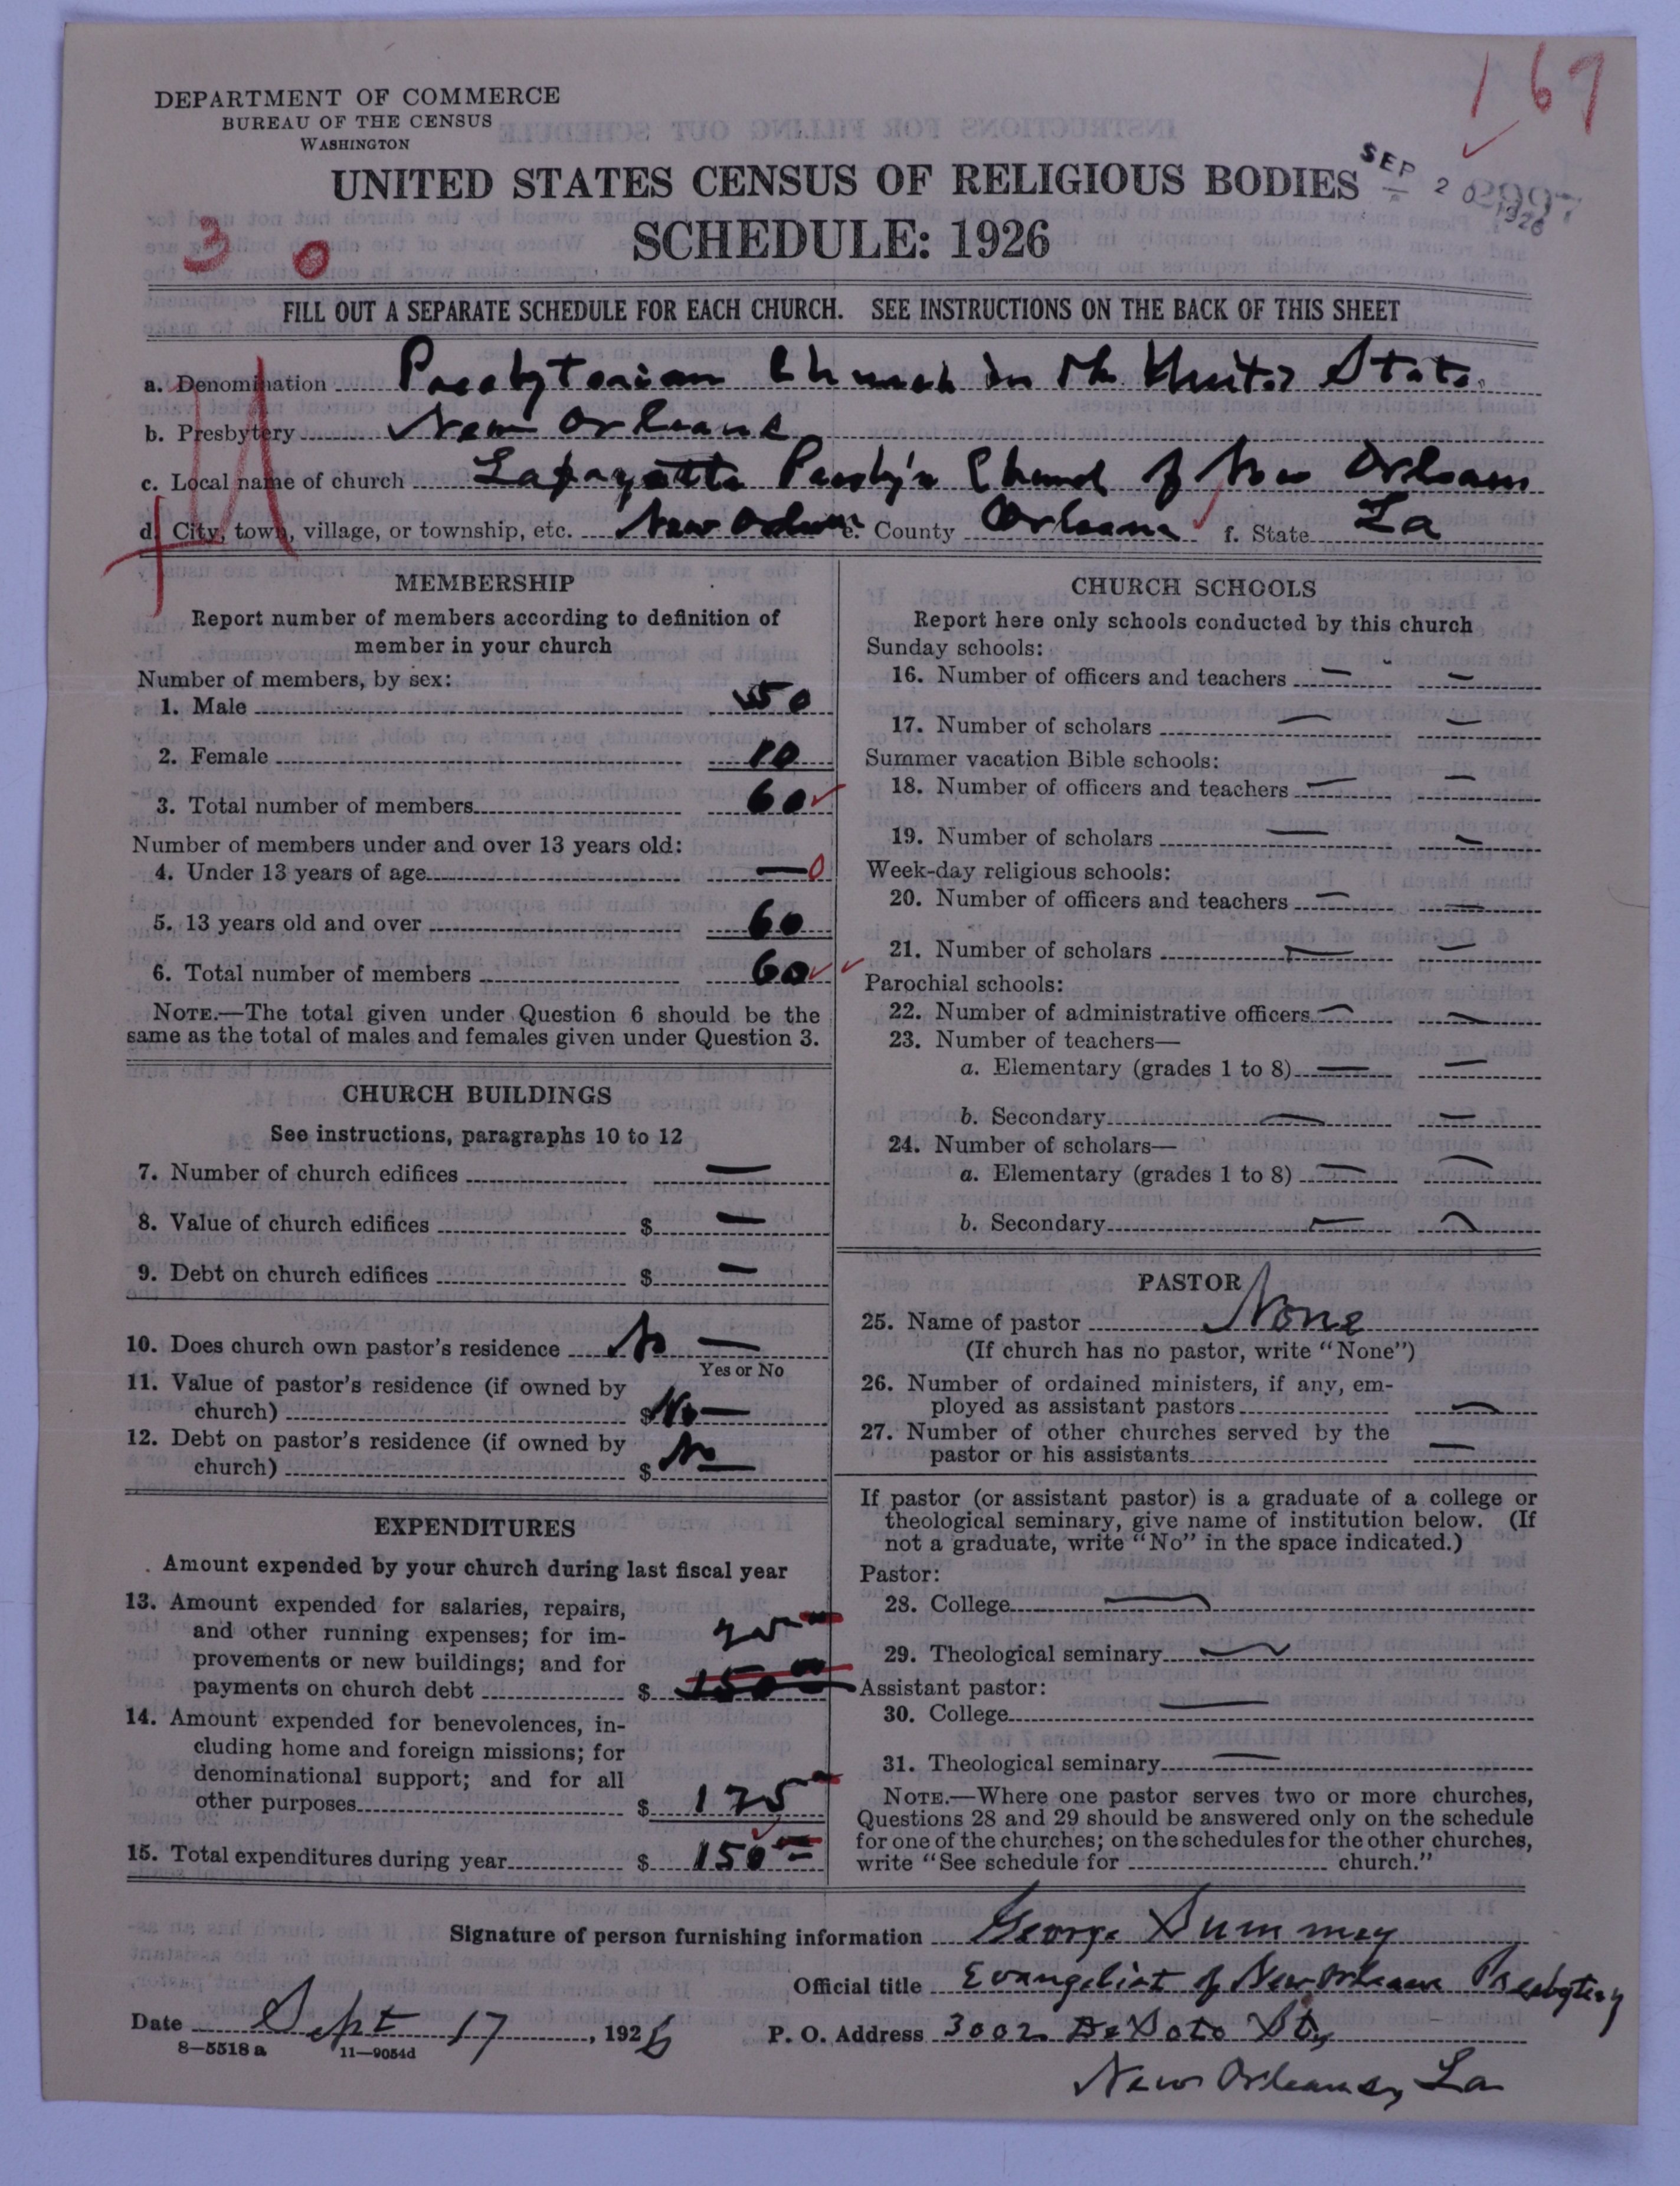 167
DEPARTMENT OF COMMERCE
BUREAU OF THE CENSUS
WASHINGTON
UNITED STATES CENSUS OF RELIGIOUS BODIES
SEP 20 1926
SCHEDULE: 1926
3 0
FILL OUT A SEPARATE SCHEDULE FOR EACH CHURCH. SEE INSTRUCTIONS ON THE BACK OF THIS SHEET
a. Denomination Presbyterian Church in the United States
b. Presbytery New Orleans
c. Local name of church Lafayette Presby'n Church of New Orleans
d. City, town, village, or township, etc. New Orleans e. County Orleans f. State La
MEMBERSHIP
Report number of members according to definition of
member in your church
Number of members, by sex:
1. Male 50
2. Female 10
3. Total number of members 60
Number of members under and over 13 years old:
4. Under 13 years of age — 0
5. 13 years old and over 60
6. Total number of members 60
NOTE.—The total given under Question 6 should be the
same as the total of males and females given under Question 3.
CHURCH BUILDINGS
See instructions, paragraphs 10 to 12
7. Number of church edifices —
8. Value of church edifices $ —
9. Debt on church edifices $ —
10. Does church own pastor's residence No —
Yes or No
11. Value of pastor's residence (if owned by
church) $ No —
12. Debt on pastor's residence (if owned by
church) $ No —
EXPENDITURES
Amount expended by your church during last fiscal year
13. Amount expended for salaries, repairs,
and other running expenses; for im-
provements or new buildings; and for
payments on church debt $
14. Amount expended for benevolences, in-
cluding home and foreign missions; for
denominational support; and for all
other purposes $ 125
15. Total expenditures during year $ 150
CHURCH SCHOOLS
Report here only schools conducted by this church
Sunday schools:
16. Number of officers and teachers — —
17. Number of scholars — —
Summer vacation Bible schools:
18. Number of officers and teachers — —
19. Number of scholars — —
Week-day religious schools:
20. Number of officers and teachers — —
21. Number of scholars — —
Parochial schools:
22. Number of administrative officers — —
23. Number of teachers—
a. Elementary (grades 1 to 8) — —
b. Secondary — —
24. Number of scholars—
a. Elementary (grades 1 to 8) — —
b. Secondary — —
PASTOR
25. Name of pastor None
(If church has no pastor, write "None")
26. Number of ordained ministers, if any, em-
ployed as assistant pastors —
27. Number of other churches served by the
pastor or his assistants —
If pastor (or assistant pastor) is a graduate of a college or
theological seminary, give name of institution below. (If
not a graduate, write "No" in the space indicated.)
Pastor:
28. College —
29. Theological seminary —
Assistant pastor:
30. College —
31. Theological seminary —
NOTE.—Where one pastor serves two or more churches,
Questions 28 and 29 should be answered only on the schedule
for one of the churches; on the schedules for the other churches,
write "See schedule for church."
Signature of person furnishing information George Summey
Official title Evangelist of New Orleans Presbytery
Date Sept 17, 1926
P. O. Address 3002 De Soto St,
New Orleans, La
8—5518 a 11—9054d